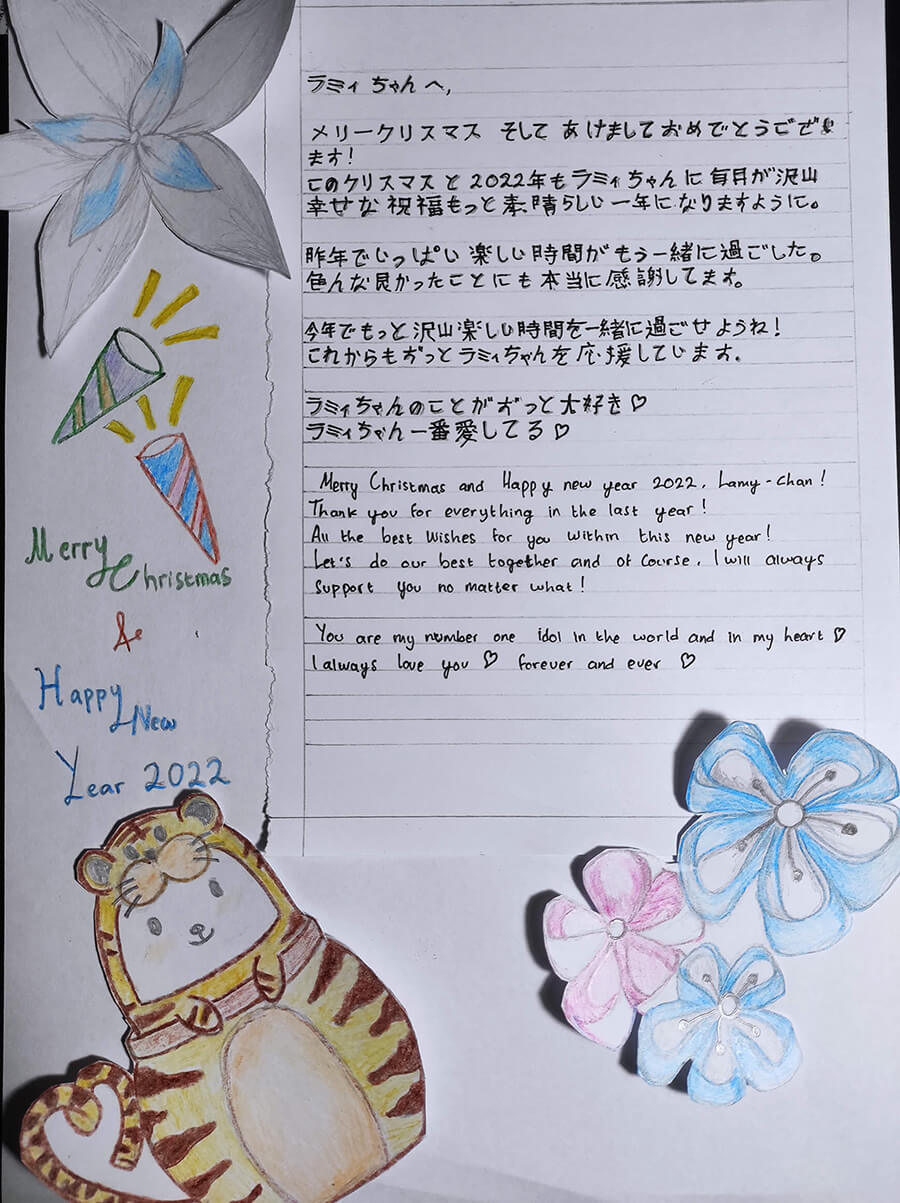 ラミィちゃんへ,
メリークリスマス そして あけましておめでとうござい
ます!
このクリスマスと2022年もラミィちゃんに毎月が沢山
幸せな祝福もっと素晴らしい一年になりますように。
昨年でいっぱい楽しい時間がもう一緒に過ごした。
色んな良かったことにも本当に感謝してます。
今年でもっと沢山楽しい時間を一緒に過ごせようね!
これからもずっとラミィちゃんを応援しています。
ラミィちゃんのことがずっと大好き♡
ラミィちゃん一番愛してる♡
Merry Christmas and Happy new year 2022, Lamy-chan!
Thank you for everything in the last year!
All the best wishes for you within this new year!
Let's do our best together and of course, I will always
support you no matter what!
You are my number one idol in the world and in my heart ♡
I always love you ♡ forever and ever ♡
Merry
Christmas
&
Happy
New
Year 2022